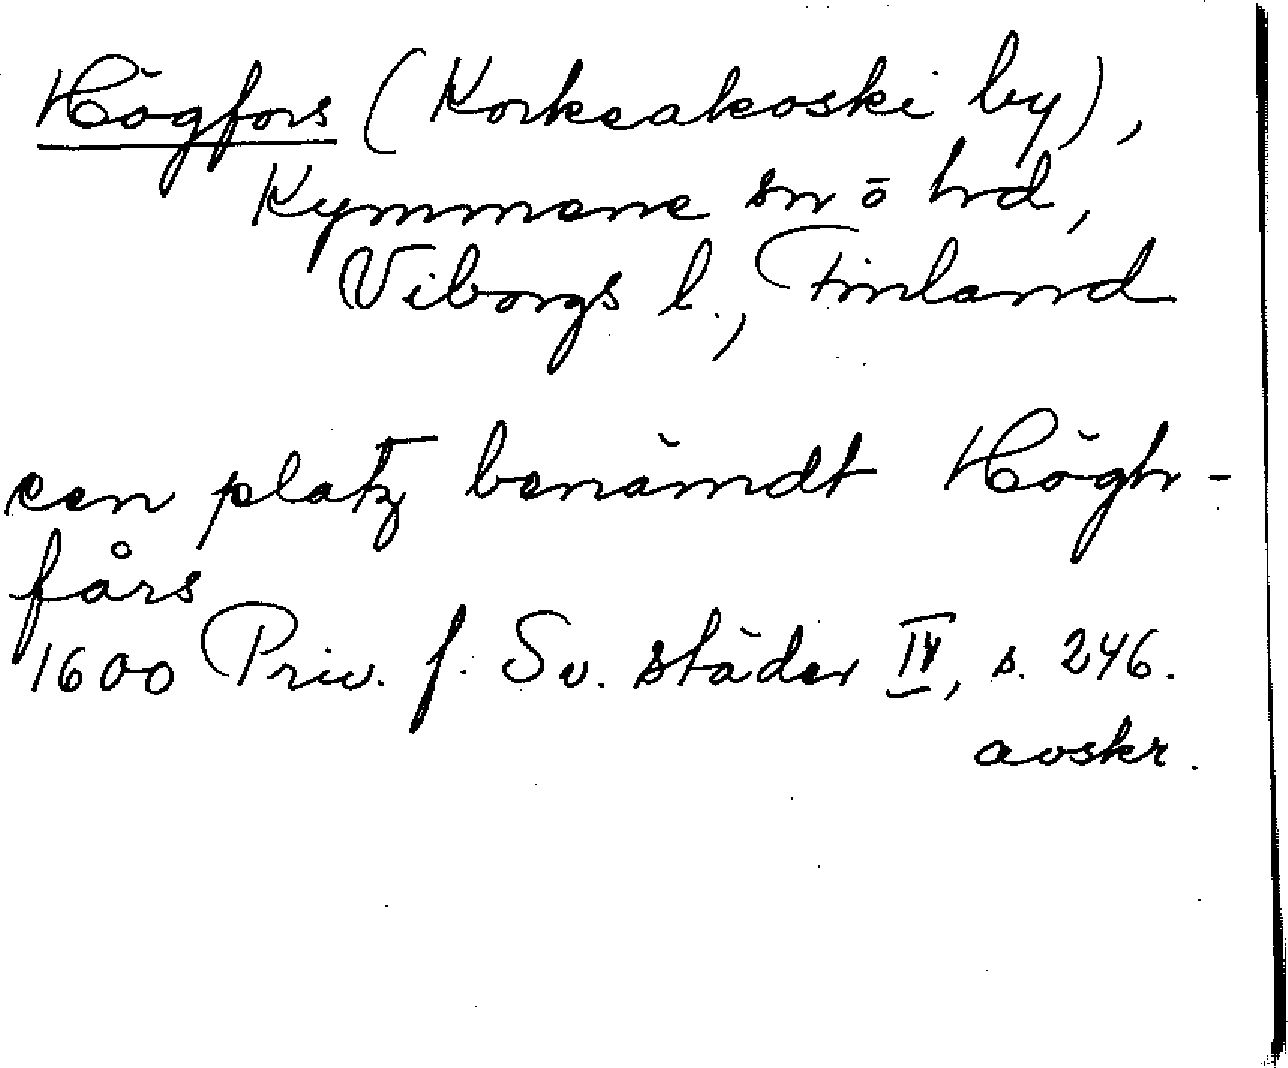 Högfors (Korkeakoski by),
Kymmene sn o hd,
Viborgs l., Finland
een platz benämdt Högh-
fårs
1600 Priv. f. Sv. städer IV, s. 246.
avskr.